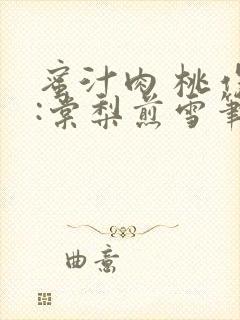 蜜汁肉桃作
:棠梨煎雪筆
曲意